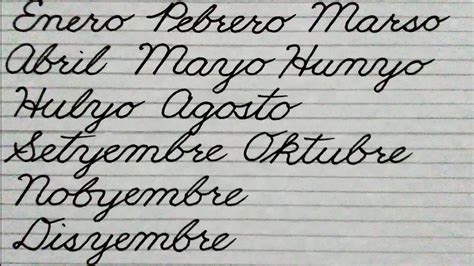 Enero Pebrero Marso
Abril Mayo Hunyo
Hulyo Agosto
Setyembre Oktubre
Nobyembre
Disyembre